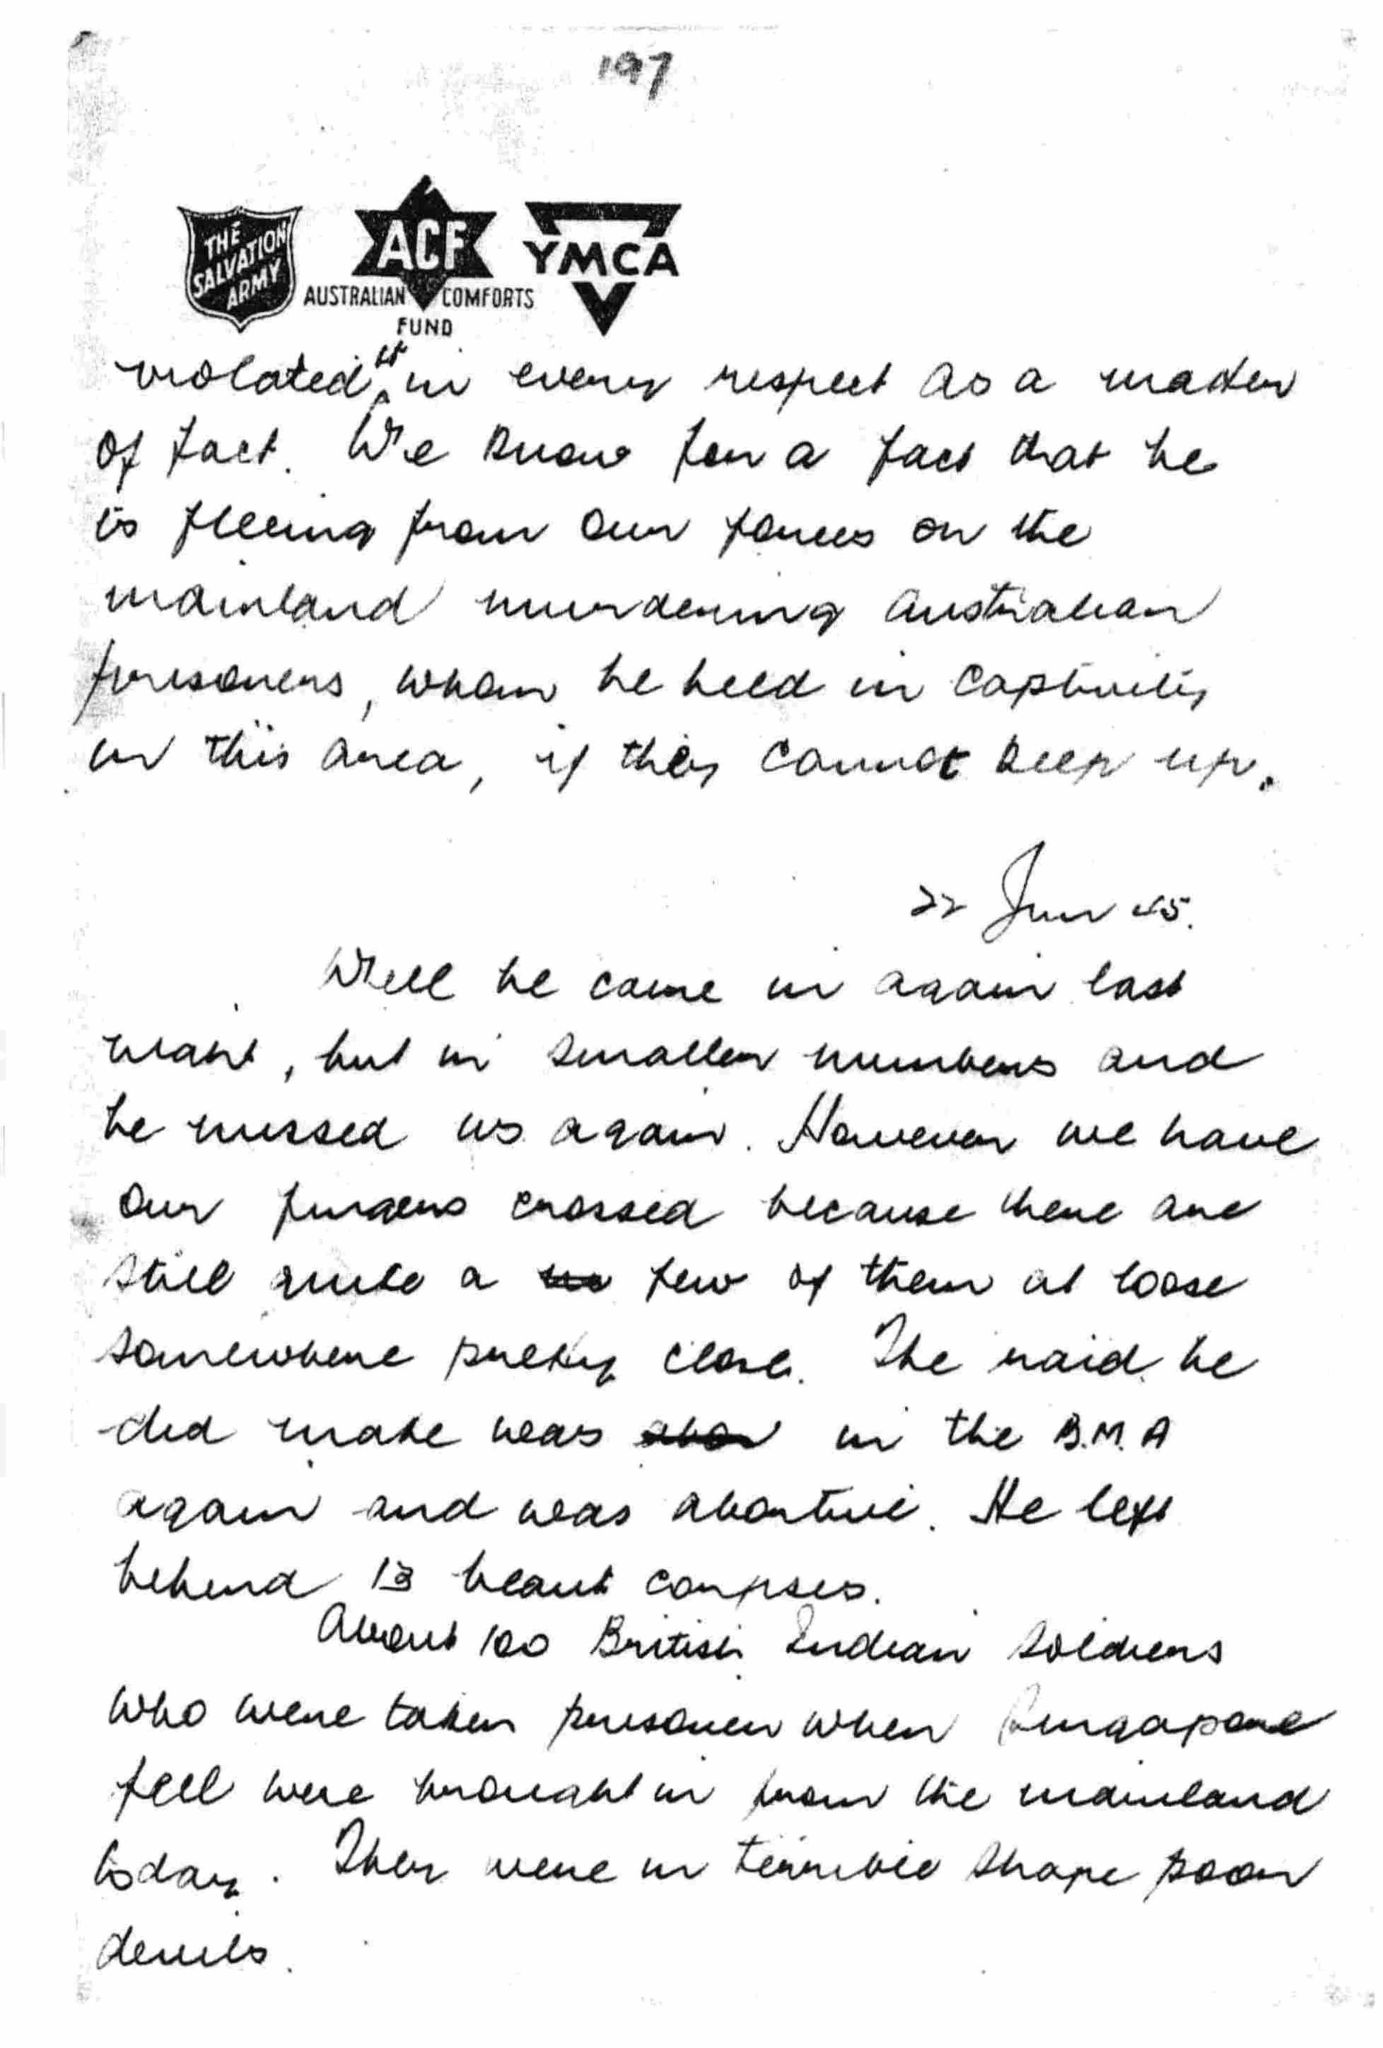 197
THE
SALVATION
ARMY
ACF
AUSTRALIAN COMFORTS
FUND
YMCA
violated it in every respect as a matter
of fact. We know for a fact that he
is fleeing from our forces on the
mainland murdering Australian
prisoners, whom he held in captivity
in this area, if they cannot keep up.
22 Jun 45.
Well he came in again last
night, but in smaller numbers and
he missed us again. However we have
our fingers crossed because there are
still quite a few of them at loose
somewhere pretty close. The raid he
did make was in the B.M.A
again and was abortive. He left
behind 13 corpses.
About 100 British Indian soldiers
who were taken prisoner when Singapore
fell were brought in from the mainland
today. They were in terrible shape poor
devils.